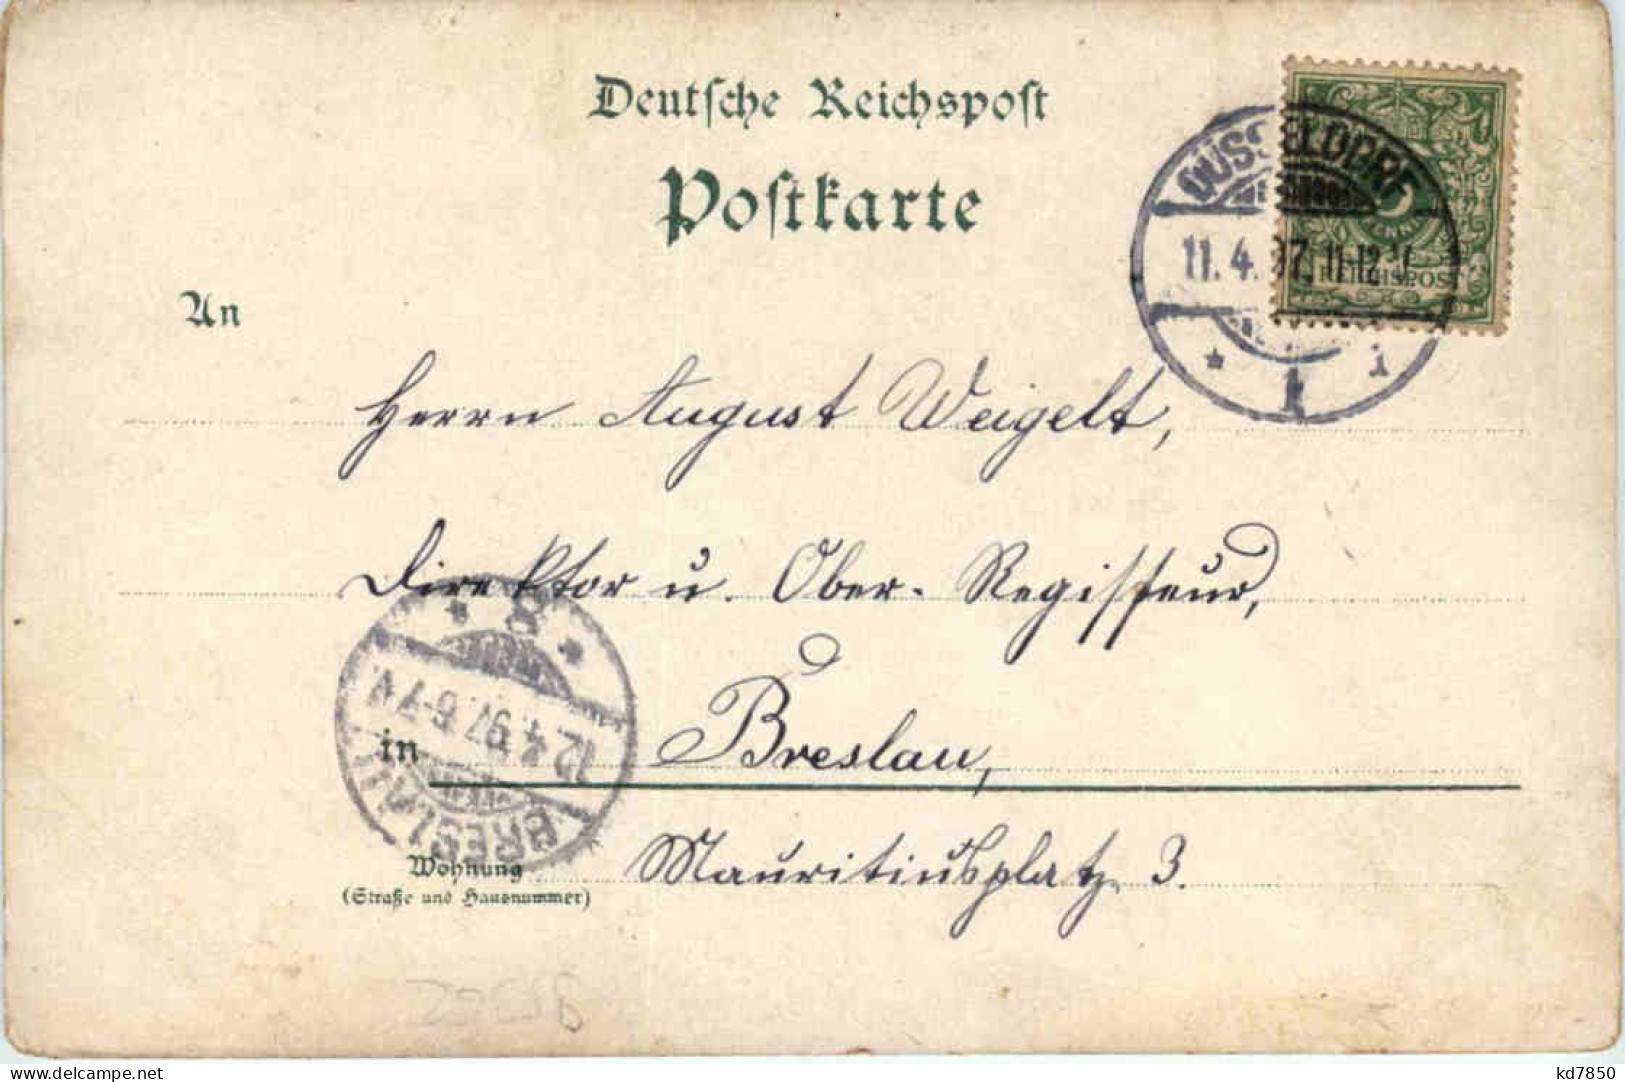 Deutsche Reichspost
Postkarte
DÜSSELDORF
11.4.97. 11-12
1 i
5
PFENNIG
REICHSPOST
An
Herrn August Weigelt,
Direktor u. Ober-Regisseur,
in Breslau,
Mauritiusplatz 3.
Wohnung
(Straße und Hausnummer)
BRESLAU
12.4.97. 6-7
8
delcampe.net
kd7850